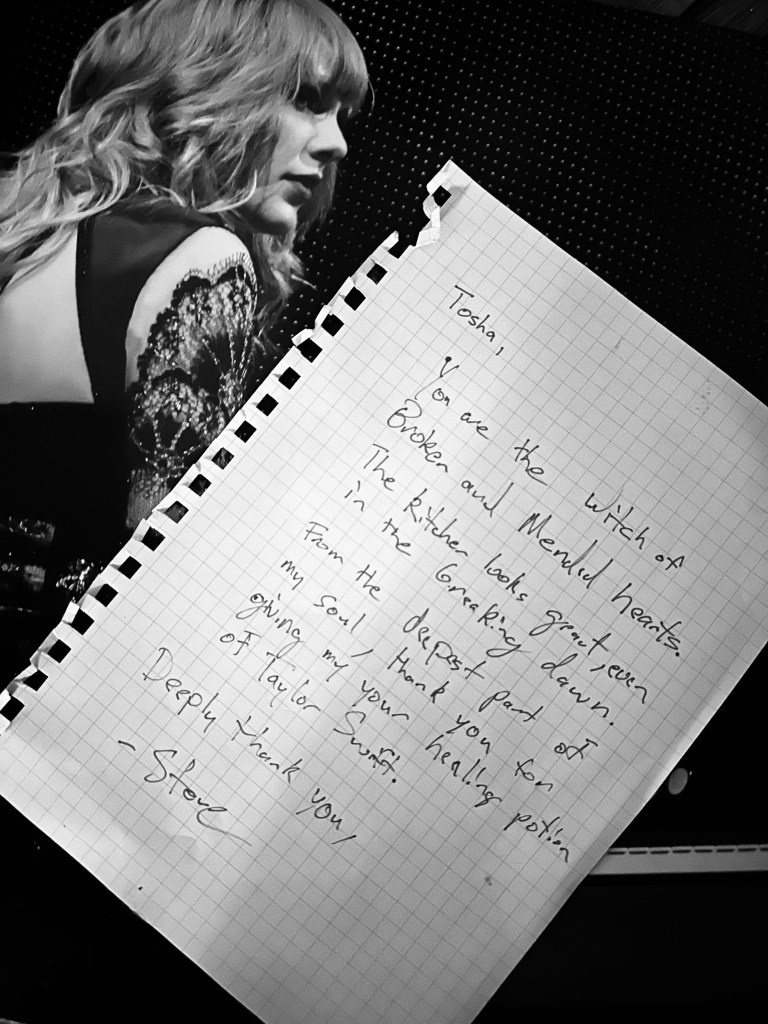 Tosha,
You are the witch of
Broken and Mended hearts.
The kitchen looks great, even
in the breaking dawn.
From the deepest part of
my soul, thank you for
giving my your healing potion
of Taylor Swift.
Deeply thank you,
- Steve